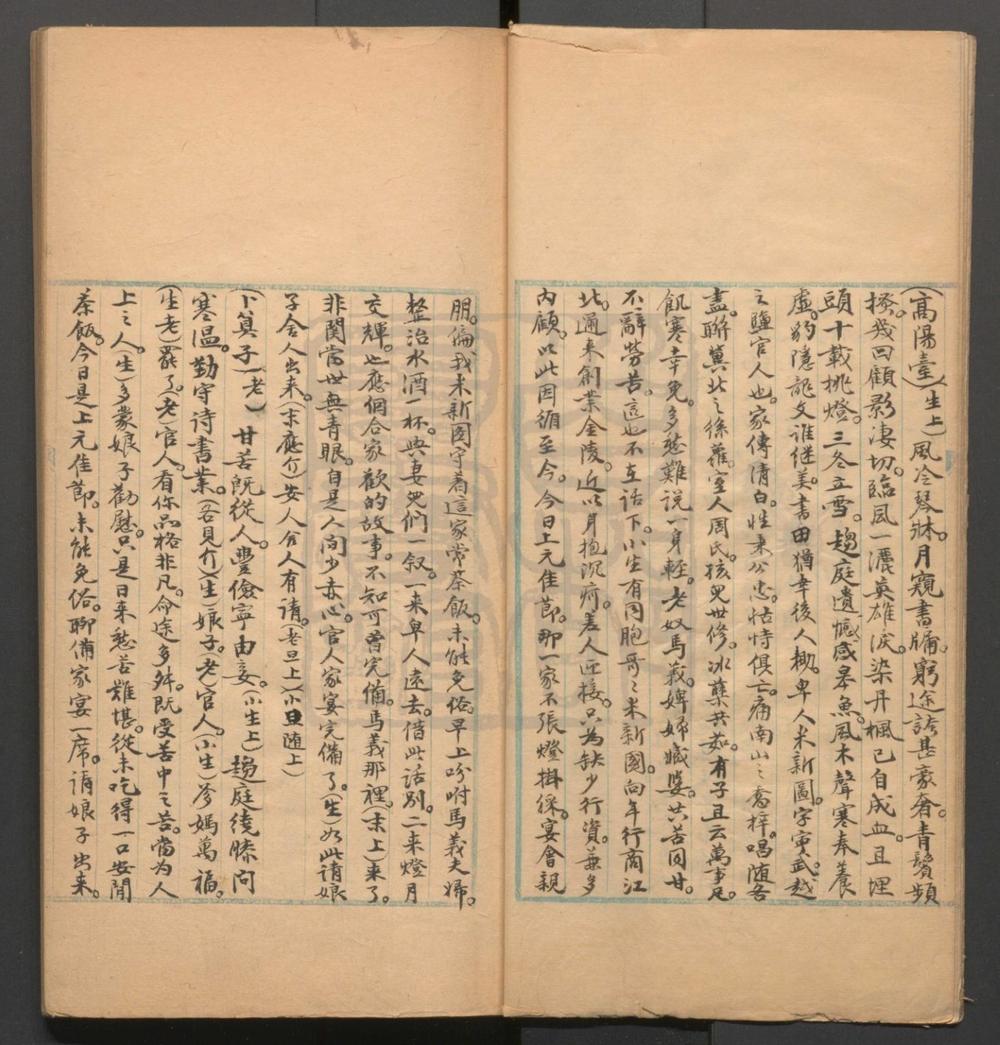 (高陽臺)(生上)風冷琴牀。月窺書牖。窮途誇甚豪奢。青鬢頻
搔。幾回顧影淒切。臨風一灑英雄淚。染丹楓已自成血。且埋
頭十載挑燈。三冬立雪。趨庭遺憾感皋魚。風木聲寒奉養
虛。豹隱龍文誰继美。書田猶幸後人耡。卑人米新圖。字寅武。越
之鹽官人也。家傳清白。性秉公忠。怙恃俱亡。痛南山之喬梓。唱随吝
盡。聯冀北之絲蘿。室人周氏。孩兒世修。冰櫱共茹。有子且云萬事足。
飢寒幸免。多愁難説一身輕。老奴馬義。婢婦臧婆。共苦同甘。
不辭勞苦。這也不在話下。小生有同胞哥々米新國。向年行商江
北。通来創業金陵。近以月抱沉疴。差人迎接。只為缺少行資。兼多
内顧。以此因循至今。今日上元佳節。那一家不張燈掛綵。宴會親
朋。偏我米新圖守着這家常茶飯。未能免俗。早上吩咐馬義夫婦。
整治水酒一杯。與妻兒們一叙。一来卑人遠去。借此話别。二来燈月
交輝。也應個合家歡的故事。不知可曾完備。馬義那裡。(末上)来了。
非関當世無青眼。自是人间少赤心。官人家宴完備了。(生)如此請娘
子舍人出来。(末應介)安人舍人有請。(老旦上)(小旦随上)
(卜算子)(老)甘苦既從人。豐儉寧由妾。(小生上)趨庭繞膝问
寒温。勤守诗書業。各見介(生)娘子。老官人。(小生)爹媽萬福。
(生老)罷了。(老)官人。看你品格非凡。命途多舛。既受苦中之苦。當为人
上之人。(生)多蒙娘子勸慰。只是日来愁苦難堪。從未吃得一口安閒
茶飯。今日是上元佳節。未能免俗。聊備家宴一席。请娘子出来。